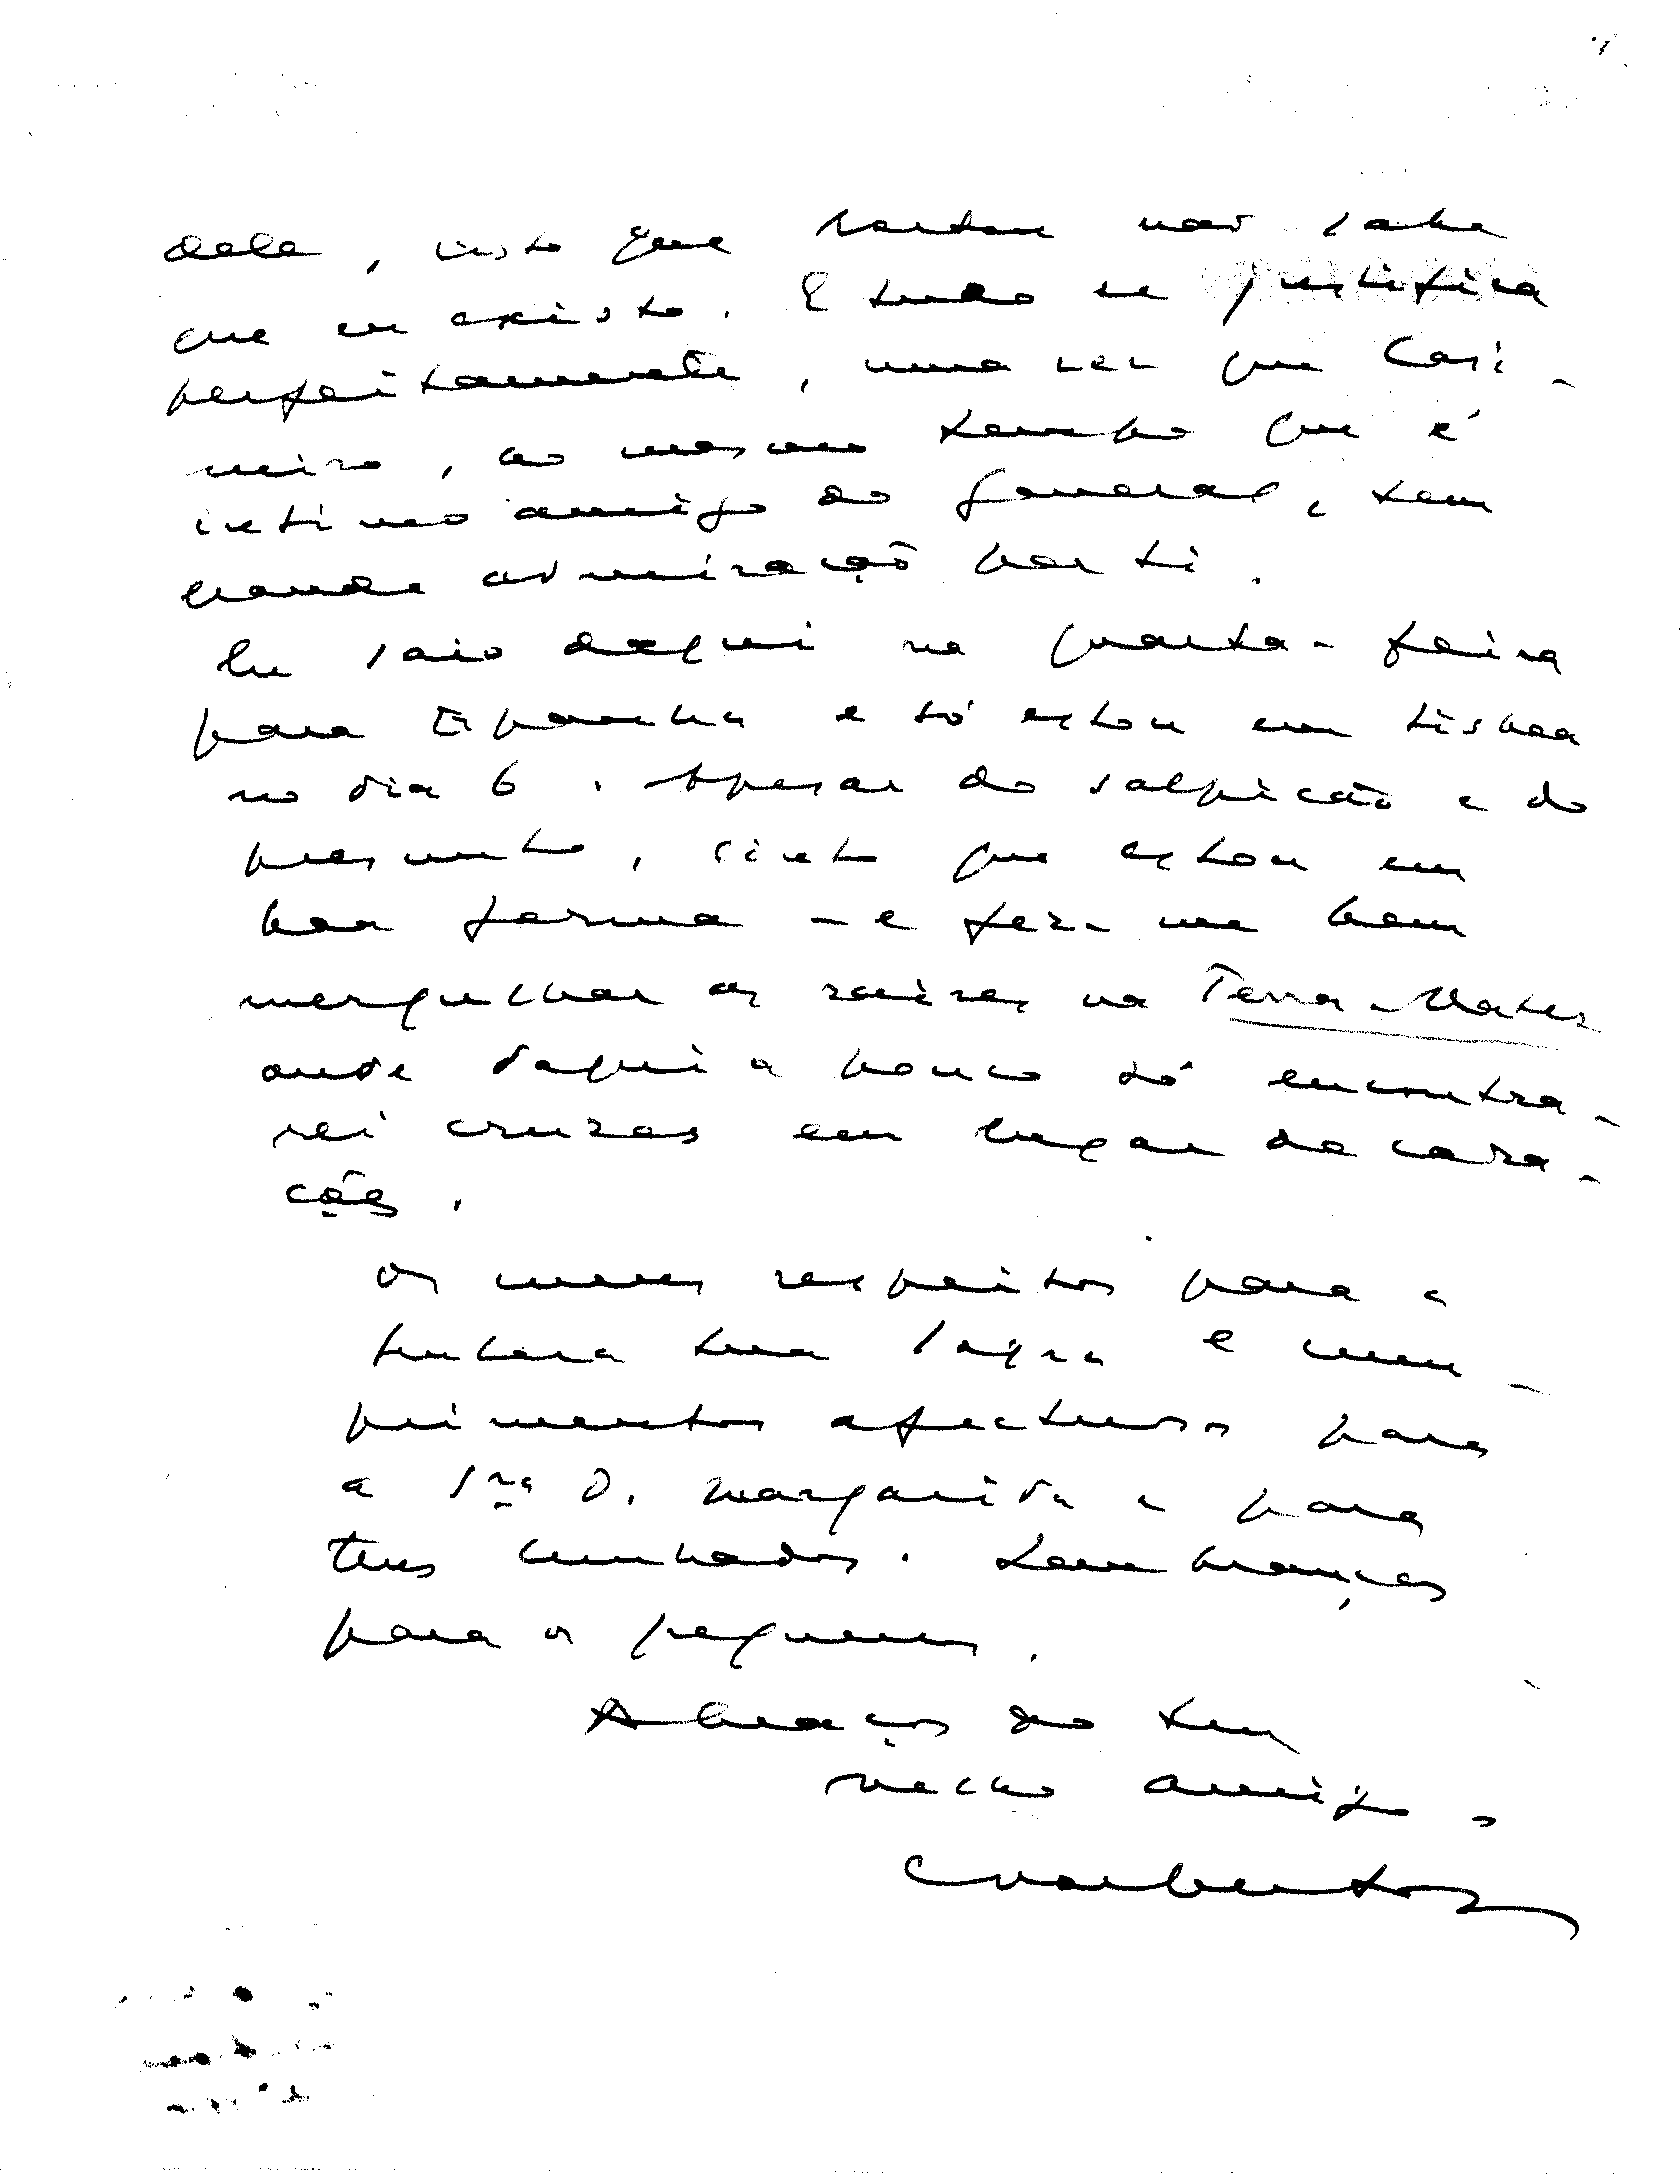 dela, visto que Norton não sabe
que eu existo. E tudo se justifica
perfeitamente, uma vez que Casi-
miro, ao mesmo tempo que é
íntimo amigo do General, tem
grande admiração por ti.
Eu saio daqui na quarta-feira
para Espanha e só estou em Lisboa
no dia 6. Apesar do salpicão e do
presunto, sinto que estou em
boa forma – e fez-me bem
mergulhar as raízes na Terra-Mater
onde daqui a pouco só encontra-
rei cruzes em lugar de cora-
ções.
Os meus respeitos para a
futura tua sogra e cum-
primentos afectuosos para
a Sra D. Margarida e para
teus cunhados. Lembranças
para os pequenos.
Abraços do teu
velho amigo,